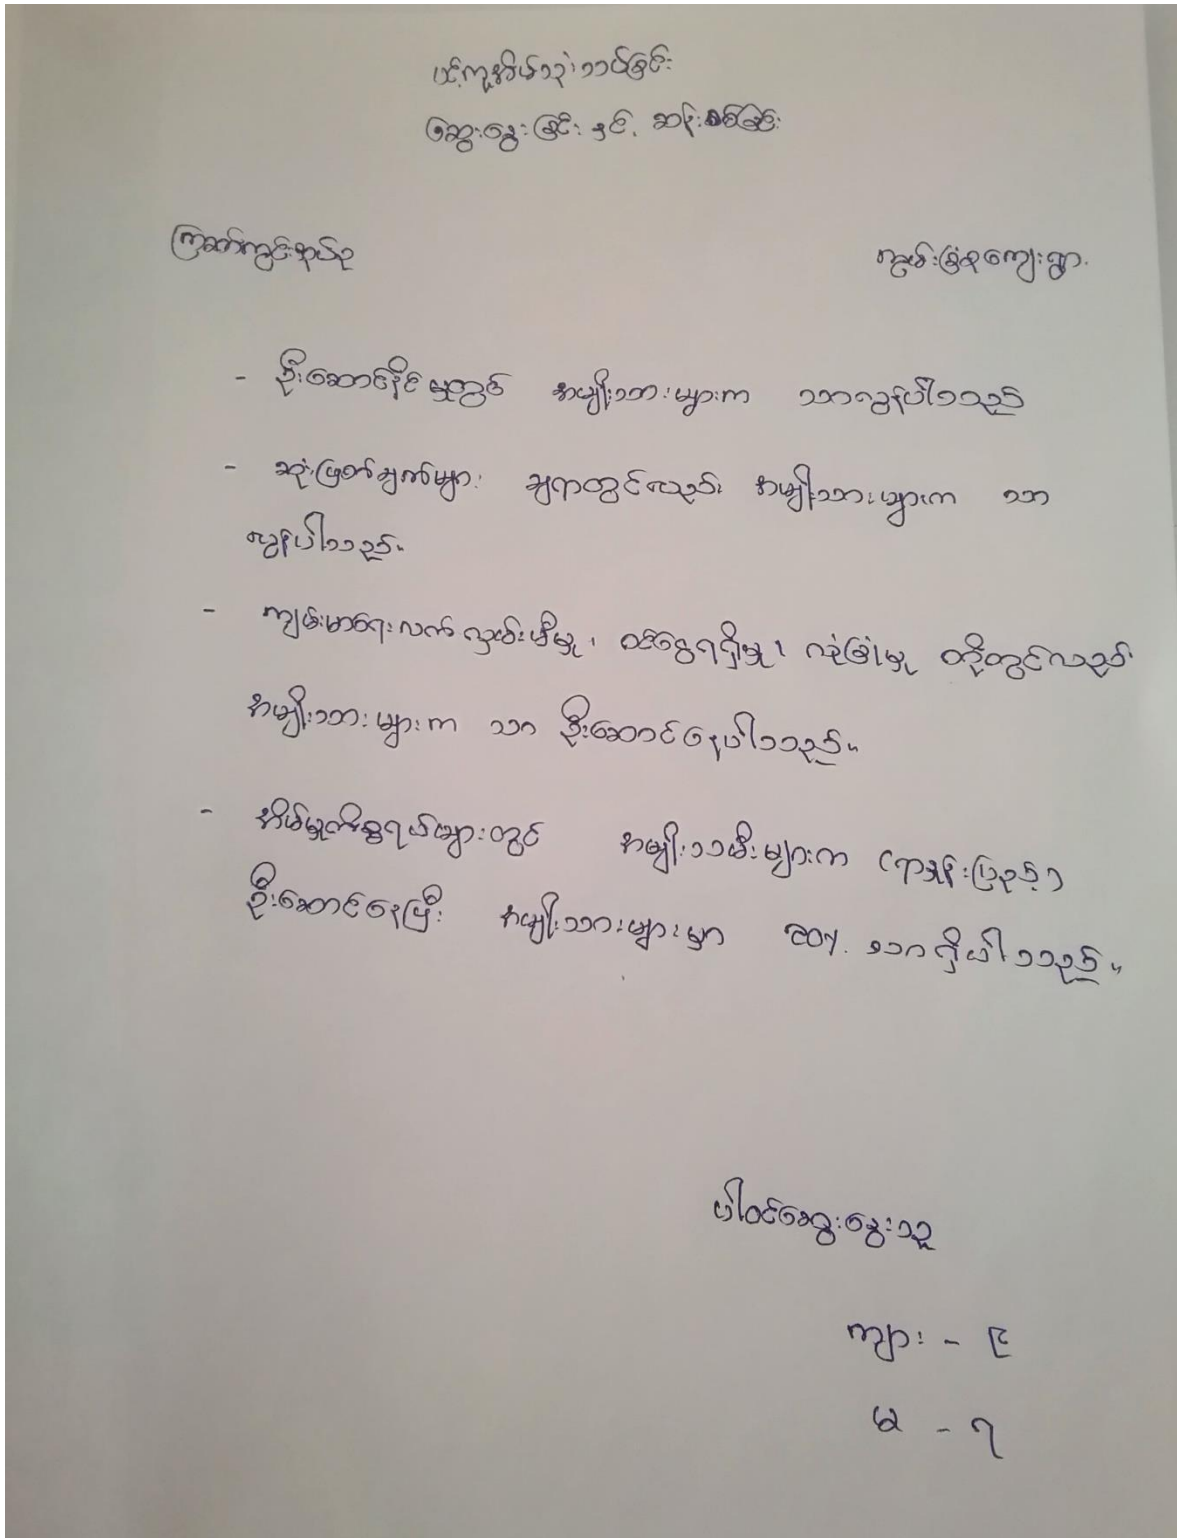 ပင့်ကူအိမ်သုံးသပ်ခြင်း
ဆွေးနွေးခြင်း နှင့် ဆန်းစစ်ခြင်း
ကြဆတ်ကွင်းအုပ်စု ကျွမ်းခြံစုကျေးရွာ
- ဦးဆောင်နိုင်မှုတွင် အမျိုးသားများက သာလွန်ပါသည်
- ဆုံးဖြတ်ချက်များ ချရာတွင်လည်း အမျိုးသားများက သာ
လွန်ပါသည်။
- ကျမ်းမာရေးလက်လှမ်းမီမှု၊ ဝင်ငွေရရှိမှု၊ လုံခြုံမှု တို့တွင်လည်း
အမျိုးသားများက သာ ဦးဆောင်နေပါသည်။
- အိမ်မှုကိစ္စရပ်များတွင် အမျိုးသမီးများက (ရာနှုန်းပြည့်)
ဦးဆောင်နေပြီး အမျိုးသားများမှာ ၅၀% သာရှိပါသည်။
ပါဝင်ဆွေးနွေးသူ
ကျား - ၉
မ - ၇